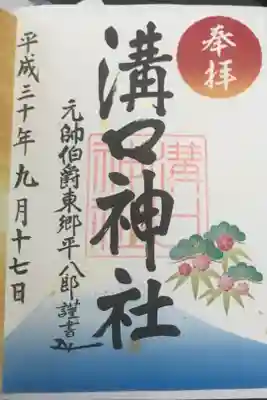 奉拝
溝口神社
元帥伯爵東郷平八郎謹書
平成三十年九月十七日